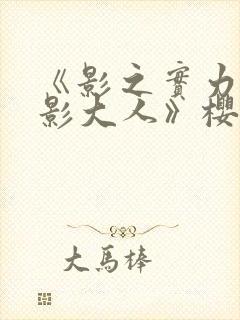 《影之實力
影大人》櫻
大馬棒